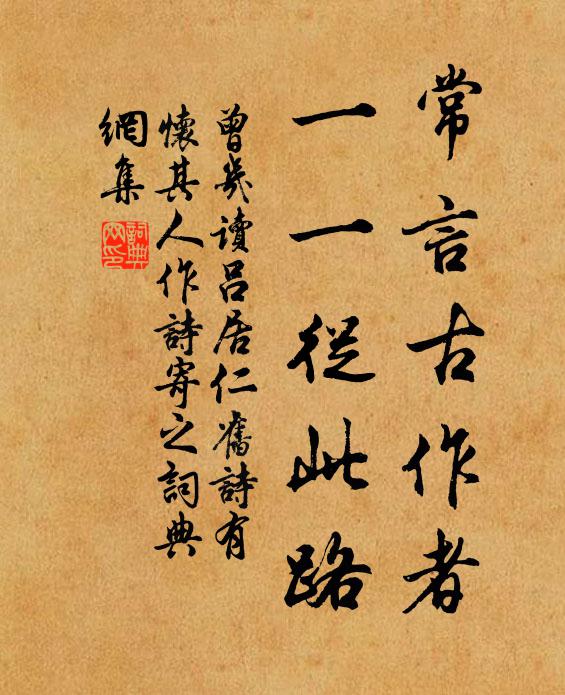 常言古作者
一一從此路
曾幾讀吕居仁舊詩有
懷其人作詩寄之詞典
網集
詞典
网印